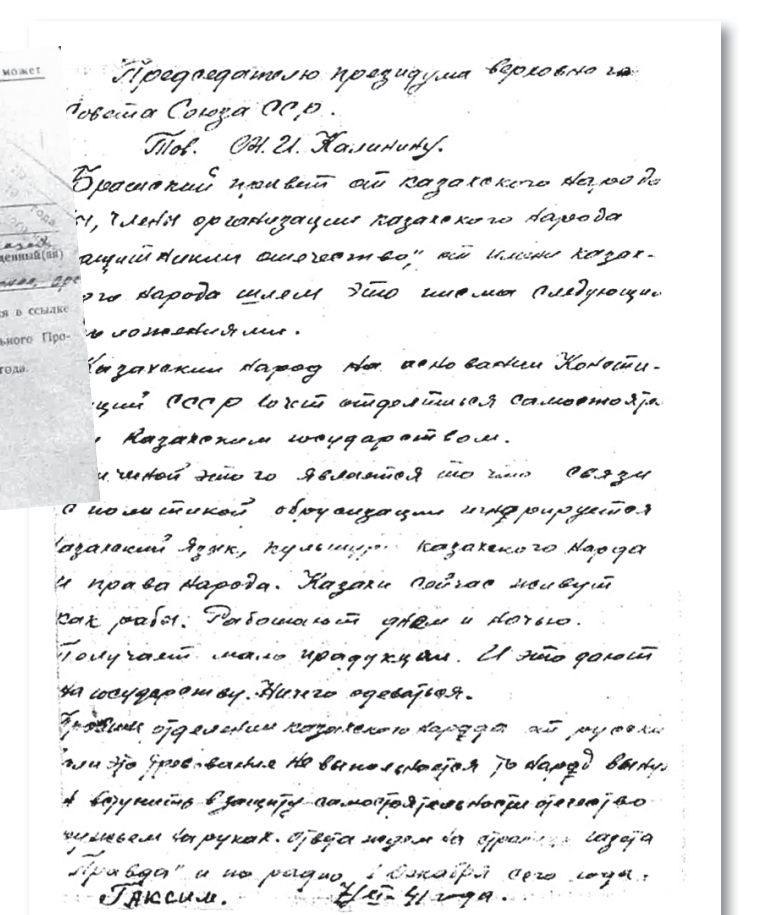 может
года
денный(ая)
я в ссылке
ьного Про-
года.
Председателю президума верховного
Совета Союза ССР.
Тов. М. И. Калинину.
Братский привет от казахского народа
ы, члены организации казахского народа
ащитники отечество", от имени казах-
ого народа шлем это писма следующии
ложениями.
Казахский народ на основании Консти-
ций СССР хочет отделиться самостояте
Казахским государством.
ичиной этого является то что связи
с политикой обрусизации игнорируется
азахский язык, культура казахского нарда
и права народа. Казахи сейчас живут
как рабы. Работают днем и ночью.
Получает мало продукции. И это дают
на государству. Ничего одеваться.
отделении казахского народа от русски
ли это требование не выполняется то народ выну
н вступить в защиту самостоятельности отечество
ружьем на руках. ответа ждем на газета
Правда" и по радио 1 декабря сего года.
Таксим. 7/XI-41 года.